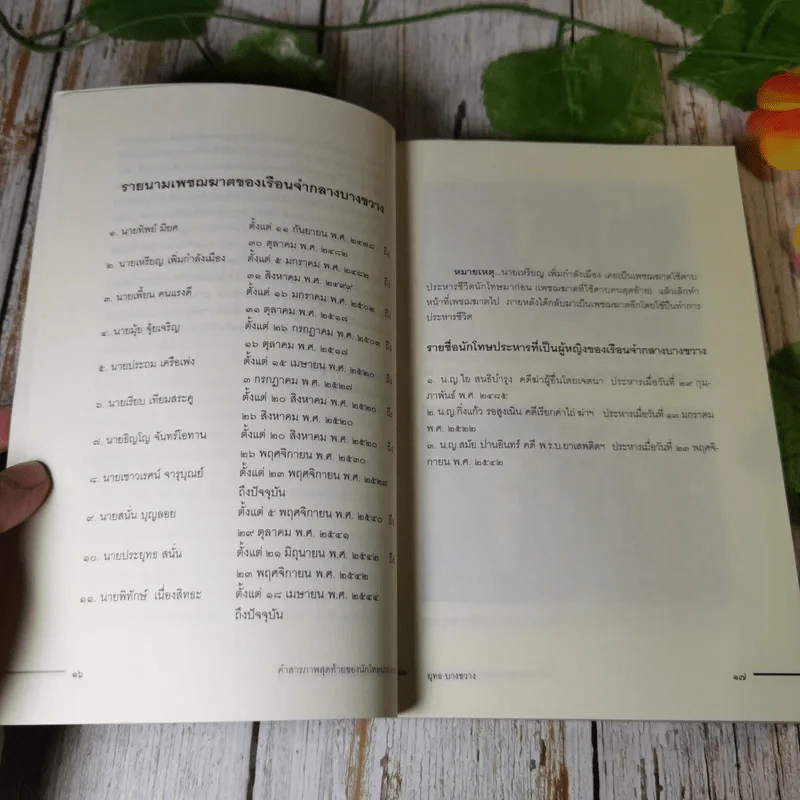 รายนามเพชฌฆาตของเรือนจำกลางบางขวาง
๑. นายทิพย์ มียศ ตั้งแต่ ๑๑ กันยายน พ.ศ. ๒๔๗๘ ถึง
๓๐ ตุลาคม พ.ศ. ๒๔๘๒
๒. นายเหรียญ เพิ่มกำลังเมือง ตั้งแต่ ๕ มกราคม พ.ศ. ๒๔๘๒ ถึง
๓๑ สิงหาคม พ.ศ. ๒๔๙๙
๓. นายเพี้ยน คนแรงดี ตั้งแต่ ๑๖ มกราคม พ.ศ. ๒๕๐๒
๓๑ ตุลาคม พ.ศ. ๒๕๑๗
๔. นายมุ้ย จุ้ยเจริญ ตั้งแต่ ๒๖ กรกฎาคม พ.ศ. ๒๕๐๓ ถึง
๑๖ ตุลาคม พ.ศ. ๒๕๑๗
๕. นายประถม เครือเพ่ง ตั้งแต่ ๑๕ เมษายน พ.ศ. ๒๕๒๐ ถึง
๓ กรกฎาคม พ.ศ. ๒๕๒๗
๖. นายเรียบ เทียมสระคู ตั้งแต่ ๒๐ สิงหาคม พ.ศ. ๒๕๒๐ ถึง
๒๖ สิงหาคม พ.ศ. ๒๕๒๐
๗. นายธิญโญ จันทร์โอทาน ตั้งแต่ ๒๐ สิงหาคม พ.ศ. ๒๕๒๐ ถึง
๒๖ พฤศจิกายน พ.ศ. ๒๕๓๐
๘. นายเชาวเรศน์ จารุบุณย์ ตั้งแต่ ๒๓ พฤศจิกายน พ.ศ. ๒๕๒๗
ถึงปัจจุบัน
๙. นายสนั่น บุญลอย ตั้งแต่ ๕ พฤศจิกายน พ.ศ. ๒๕๔๐ ถึง
๒๙ ตุลาคม พ.ศ. ๒๕๔๑
๑๐. นายประยุทธ สนั่น ตั้งแต่ ๒๑ มิถุนายน พ.ศ. ๒๕๔๒ ถึง
๒๓ พฤศจิกายน พ.ศ. ๒๕๔๒
๑๑. นายพิทักษ์ เนื่องสิทธะ ตั้งแต่ ๑๘ เมษายน พ.ศ. ๒๕๔๔
ถึงปัจจุบัน
๑๖ คำสารภาพสุดท้ายของนักโทษ
หมายเหตุ...นายเหรียญ เพิ่มกำลังเมือง เคยเป็นเพชฌฆาตใช้ดาบ
ประหารชีวิตนักโทษมาก่อน (เพชฌฆาตที่ใช้ดาบคนสุดท้าย) แล้วเลิกทำ
หน้าที่เพชฌฆาตไป ภายหลังได้กลับมาเป็นเพชฌฆาตอีกโดยใช้ปืนทำการ
ประหารชีวิต
รายชื่อนักโทษประหารที่เป็นผู้หญิงของเรือนจำกลางบางขวาง
๑. น.ญ.ใย สนธิบำรุง คดีฆ่าผู้อื่นโดยเจตนา ประหารเมื่อวันที่ ๒๙ กุม-
ภาพันธ์ พ.ศ. ๒๔๘๕
๒. น.ญ.กิ่งแก้ว รอสูงเนิน คดีเรียกค่าไถ่ ฆ่าฯ ประหารเมื่อวันที่ ๑๓ มกราคม
พ.ศ. ๒๕๒๒
๓. น.ญ.สมัย ปานอินทร์ คดี พ.ร.บ.ยาเสพติดฯ ประหารเมื่อวันที่ ๒๓ พฤศจิ-
กายน พ.ศ. ๒๕๔๒
ยุทธ บางขวาง ๑๗